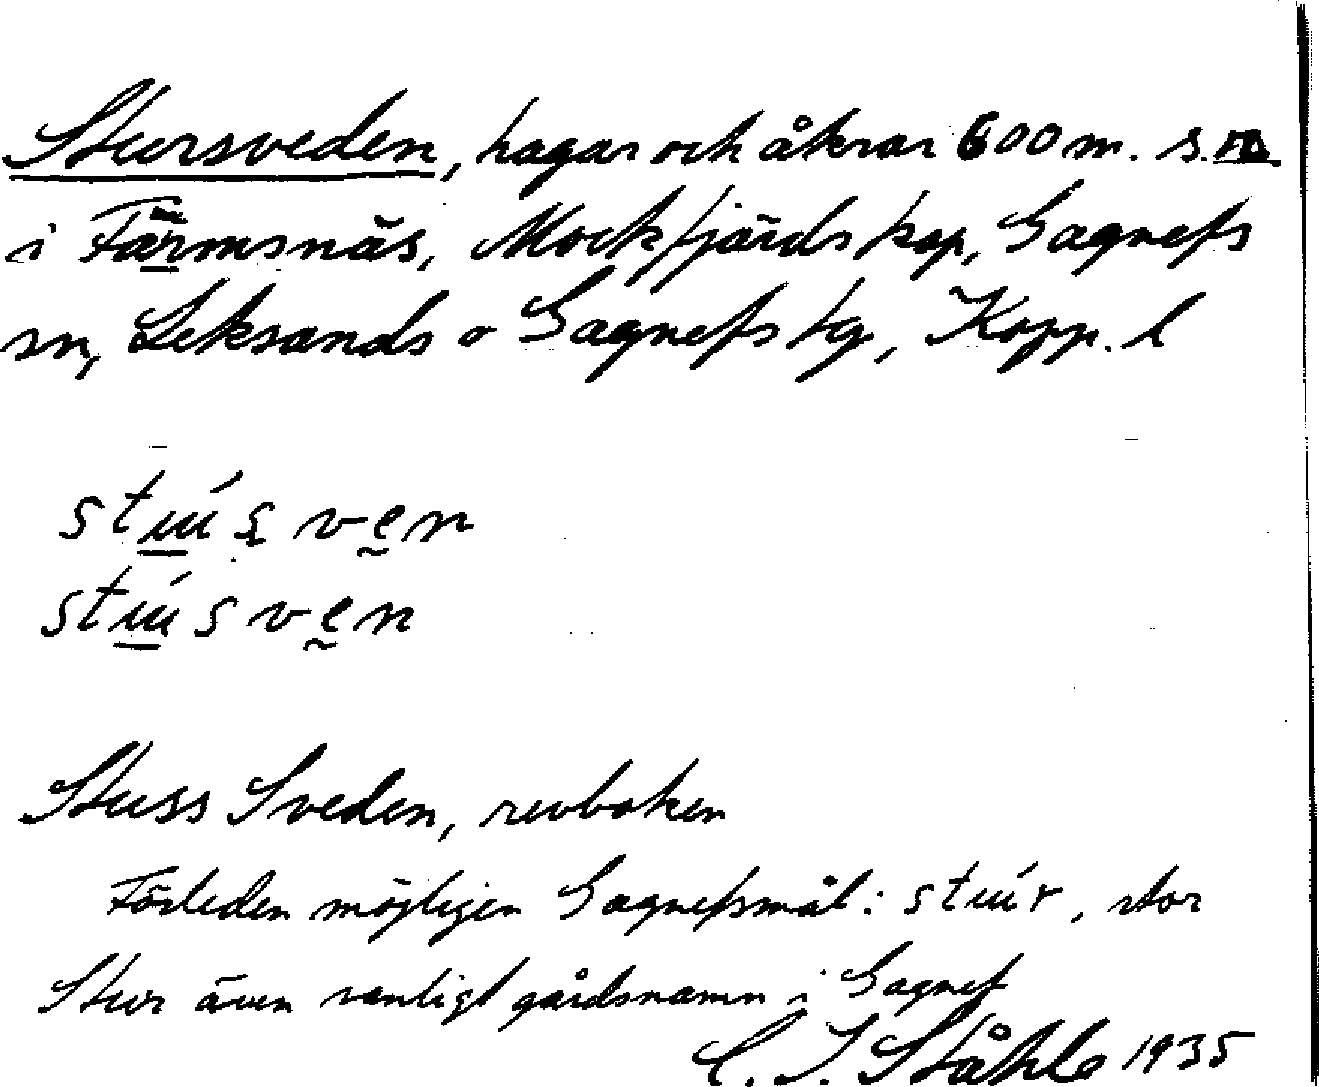 Stursveden, hagar och åkrar 600 m. s.
i Färmsnäs, Mockfjärds kap, Gagnefs
sn, Leksands o Gagnefs tg, Kopp. l
stús ven
stúsven
Stuss Sveden, revboken
Förleden möjligen Gagnefsmål: stúr, stor
Stur även vanligt gårdsnamn i Gagnef
C. I. Ståhle 1935